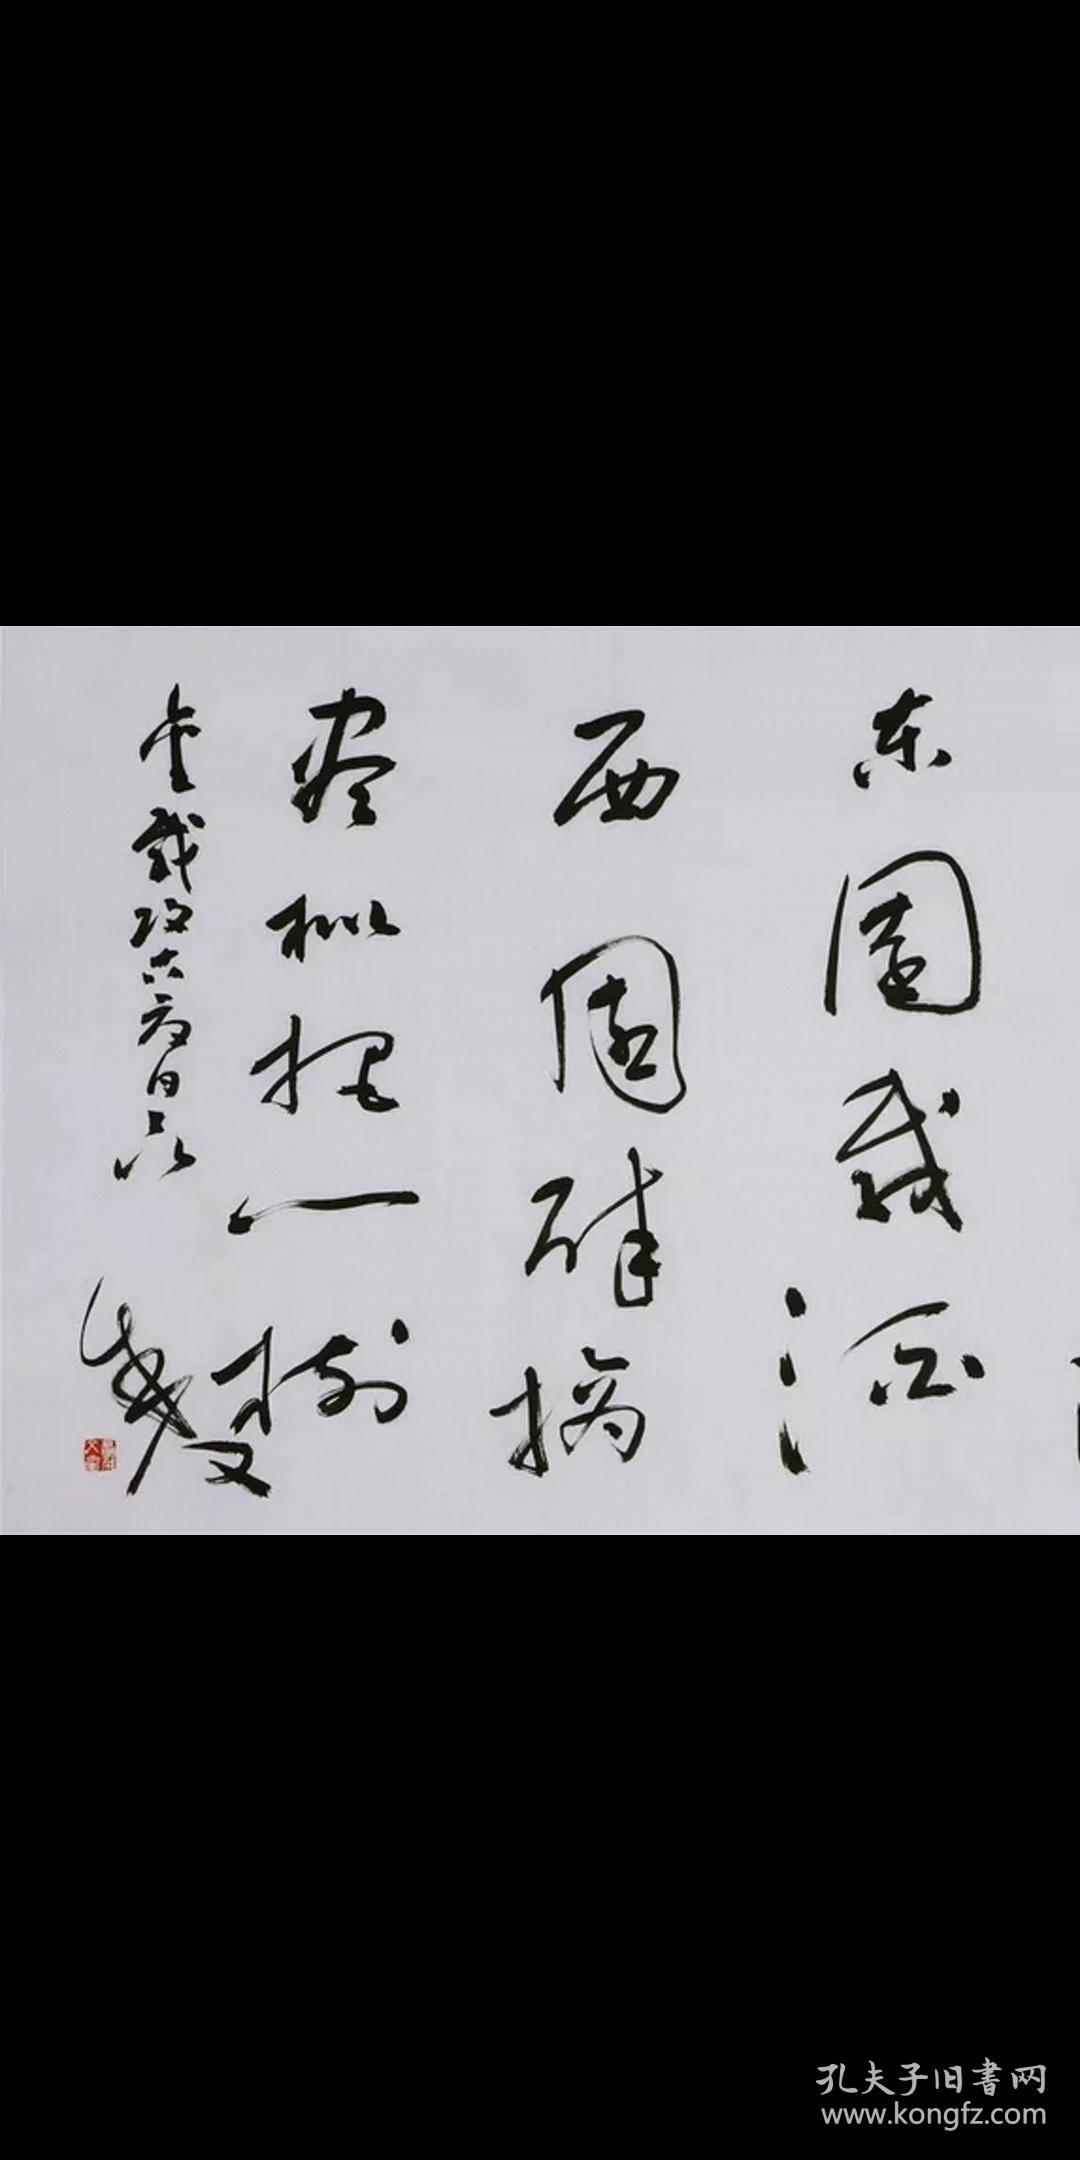 东園載酒
西園醉摘
盡枇杷一樹
金戴復古
孔夫子旧書网
www.kongfz.com